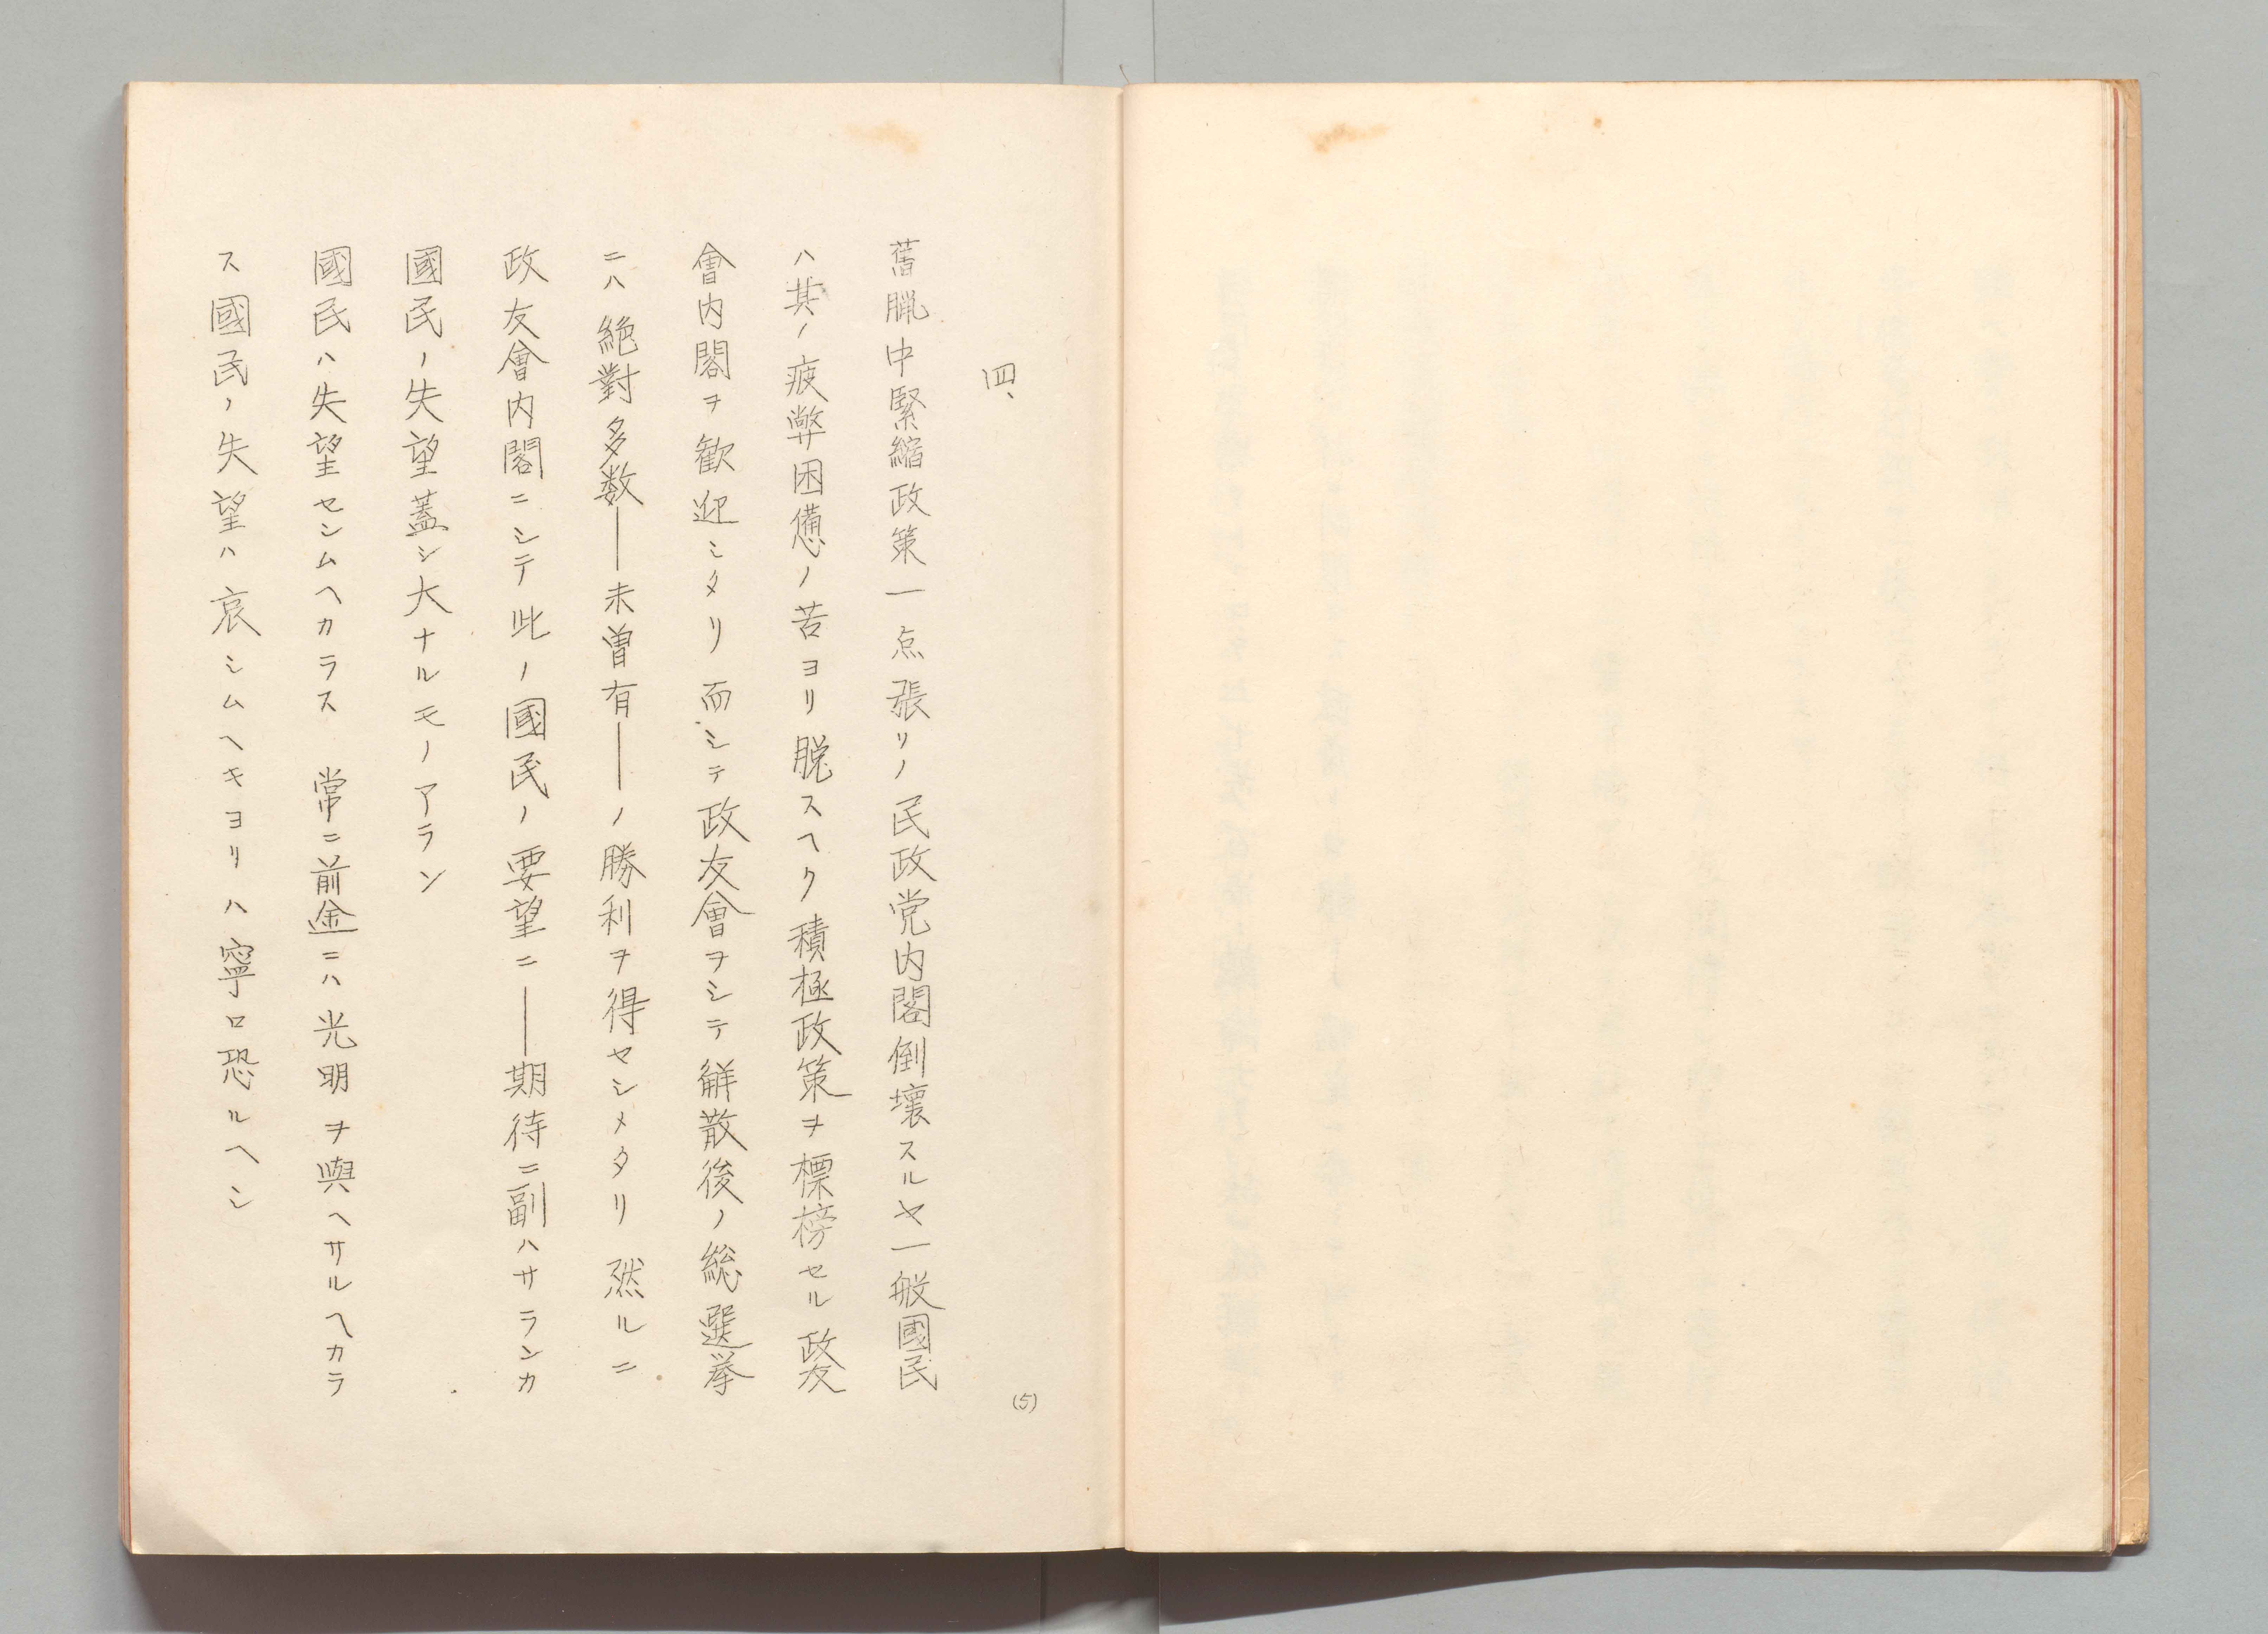 四、
舊臘中緊縮政策一点張リノ民政党内閣倒壞スルヤ一般國民
ハ其ノ疲弊困憊ノ苦ヨリ脱スヘク積極政策ヲ標榜セル政友
會内閣ヲ歓迎シタリ而シテ政友會ヲシテ觧散後ノ総選挙
ニハ絶對多数――未曽有――ノ勝利ヲ得セシメタリ 然ルニ
政友會内閣ニシテ此ノ國民ノ要望ニ――期待ニ副ハサランカ
國民ノ失望蓋シ大ナルモノアラン
國民ハ失望センムヘカラス 常ニ前途ニハ光明ヲ與ヘサルヘカラ
ス國民ノ失望ハ哀シムヘキヨリハ寧ロ恐ルヘシ
(5)